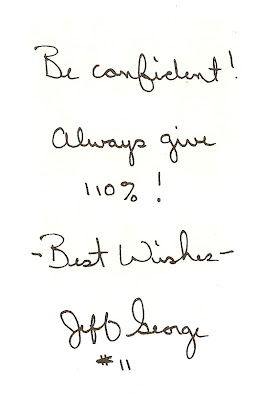 Be confident!
Always give
110% !
-Best Wishes-
Jeff George
#11